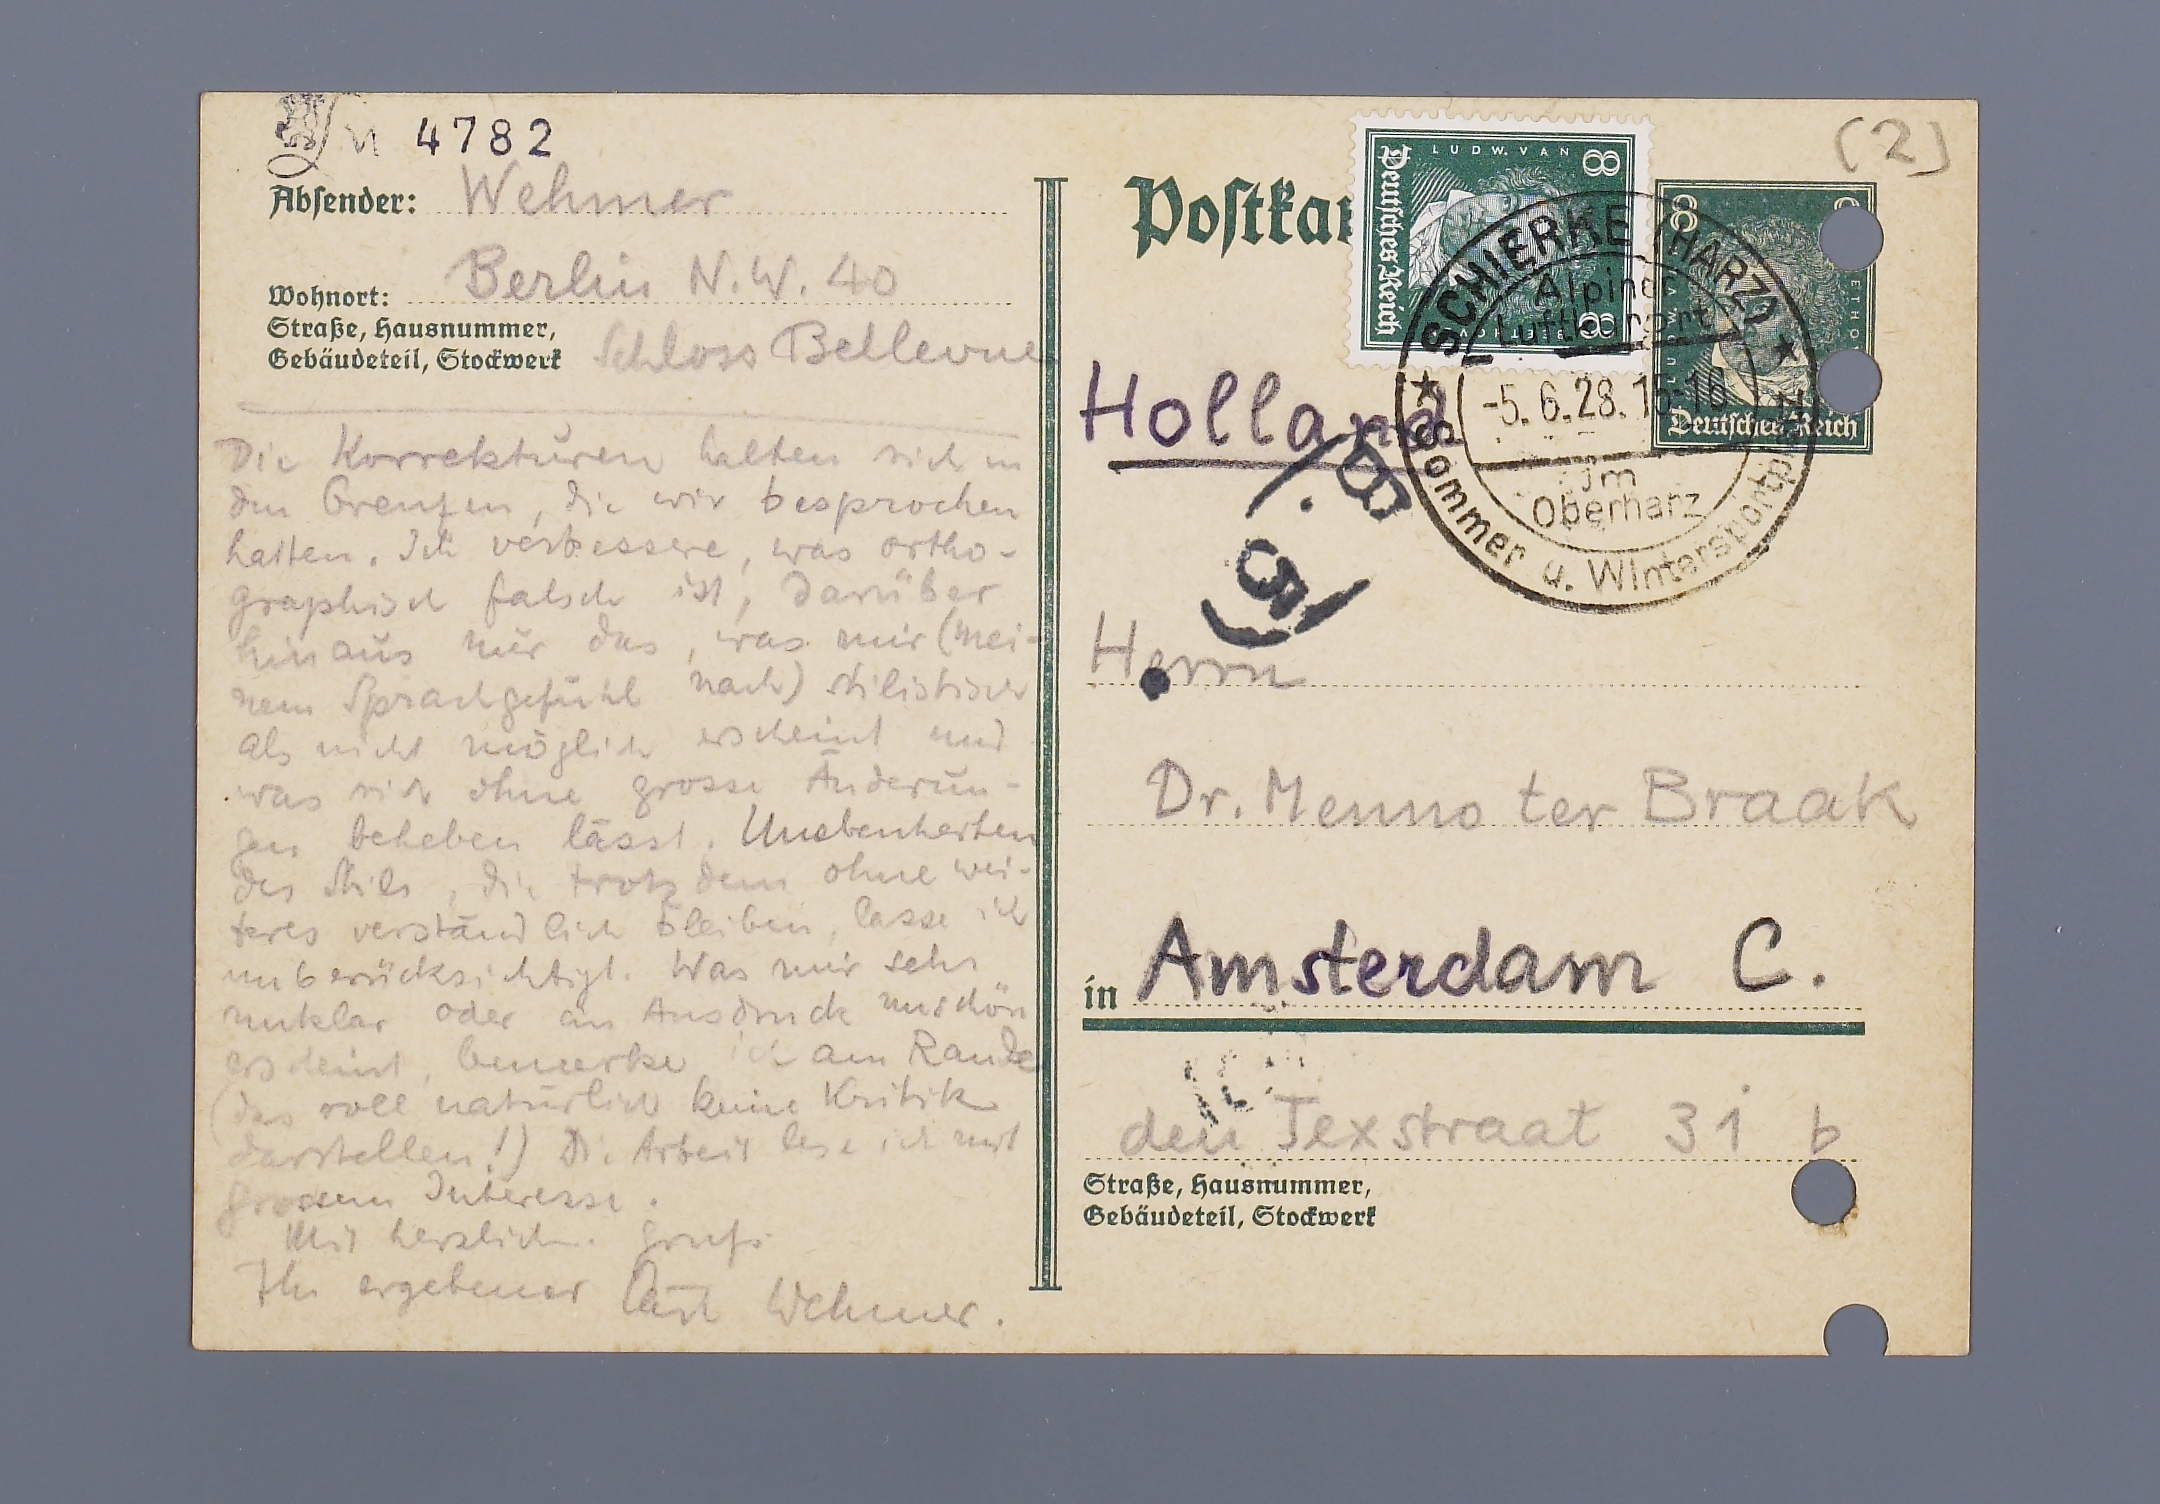 4782
Absender: Wehmer
Wohnort: Berlin N.W. 40
Straße, Hausnummer,
Gebäudeteil, Stockwerk Schloss Bellevue
Die Korrekturen halten sich in
den Grenzen, die wir besprochen
hatten. Ich verbessere, was ortho-
graphisch falsch ist, darüber
hinaus nur das, was mir (mei-
nem Sprachgefühl nach) stilistisch
als nicht möglich erscheint und
was sich ohne grosse Änderun-
gen beheben lässt. Unebenheiten
des Stils, die trotzdem ohne wei-
teres verständlich bleiben, lasse ich
unberücksichtigt. Was mir sehr
unklar oder im Ausdruck unschön
erscheint, bemerke ich am Rande
(das soll natürlich keine Kritik
darstellen!) Die Arbeit lese ich mit
grossem Interesse.
Mit herzlich. Gruß
Ihr ergebener Carl Wehmer.
(2)
Postkar
LUDW. VAN
8
Deutsches Reich
8
BEETHOV
8
Deutsches Reich
SCHIERKE (HARZ)
Alpine
Luftkurort
-5.6.28.15-16
Im
Oberharz
Sommer u. Wintersportplatz
Holland
Herrn
Dr. Menno ter Braak
in Amsterdam C.
den Texstraat 31 b
Straße, Hausnummer,
Gebäudeteil, Stockwerk